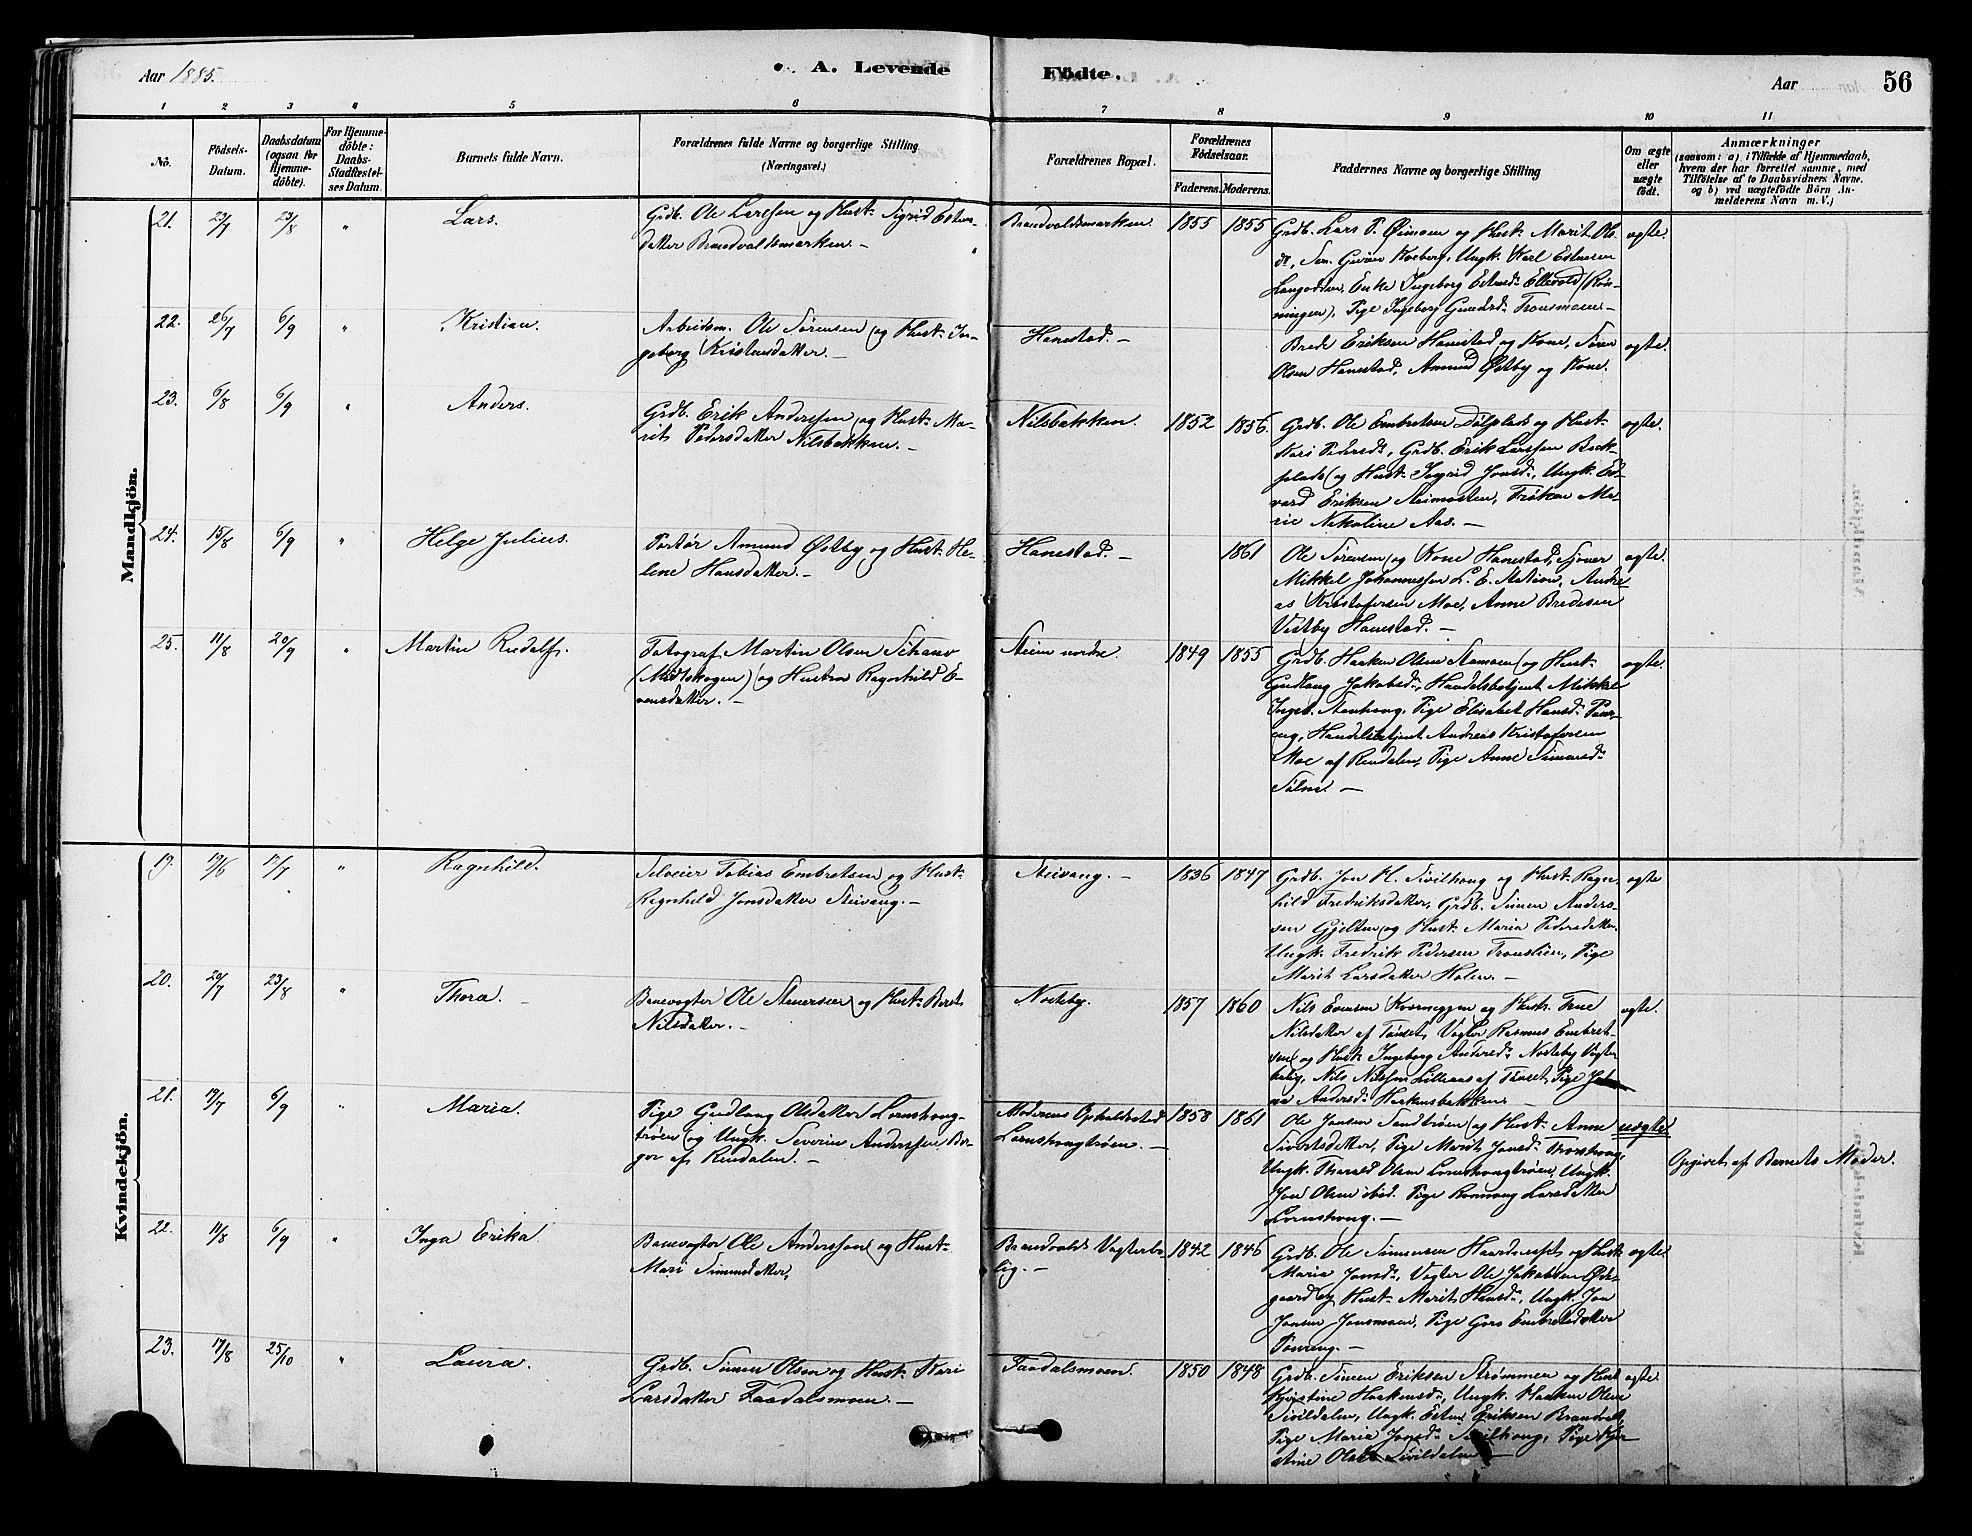 Aar 1885.
A. Levende
Födte.
Aar
56
1 2 3 4 5 6 7 8 9 10 11
No.
Födsels-
Datum.
Daabsdatum
(ogsaa for
Hjemme-
döbte).
For Hjemme-
döbte:
Daabs-
Stadfæstel-
ses Datum.
Barnets fulde Navn.
Forældrenes fulde Navne og borgerlige Stilling
(Næringsvei.)
Forældrenes Bopæl.
Forældrenes
Födselsaar.
Faderens. Moderens.
Faddernes Navne og borgerlige Stilling
Om ægte
eller
uægte
födt.
Anmærkninger
(saasom: a) i Tilfælde af Hjemmedaab,
hvem der har forrettet samme, med
Tilföielse af to Daabsvidners Navne.
og b) ved uægtefödte Börn An-
melderens Navn m. V.)
Mandkjön.
21. 23/7 23/8 " Lars.
Grdb. Ole Larssen og Hust. Sigrid Esten-
datter Brandvoldsmarken. —
Brandvoldsmarken. 1855 1855
Grdb. Lars P. Øimoen og Hust. Marit Ols
dr, Sm. Koeberg, Ungk. Karl Estensen
Langodden, Enke Ingeborg Estensdr Ellevold (Røn-
ningen), Pige Ingeborg Gundersdr Tronsmoen. —
ægte.
22. 26/7 6/9 " Kristian.
Arbeidsm. Ole Sørensen og Hust. In-
geborg Kristensdatter. —
Hanestad. —
Brede Eriksen Hanestad og Kone, Søren
Olsen Hanestad, Amund Østby og Kone.
ægte.
23. 6/8 6/9 " Anders.
Grdb. Erik Anderssen og Hust. Ma-
rit Pedersdatter Nilsbakken. —
Nilsbakken. 1852 1856.
Grdb. Ole Embretsen Dølplads og Hust.
Kari Pedersdr, Grdb. Erik Larssen Bæk-
plads og Hust. Ingrid Jonsdr, Ungk. Ed-
vard Eriksen Steimosten, Frøken Ma-
rie Nikoline Aas. —
ægte.
24. 15/8 6/9 " Helge Julius.
Portør Amund Østby og Hust. He-
lene Hansdatter. —
Hanestad. — 1861
Ole Sørensen og Kone Hanestad,
Mikkel Johannessen L. E. Station, Andre-
as Kristofersen Moe, Anne Bredesen
Vestby Hanestad. —
ægte.
25. 11/8 20/9 " Martin Rudolf.
Fotograf Martin Olsen
og Hustru Ragnhild E-
vensdatter. —
Steim nordre. 1849 1855
Grdb. Haaken Olsen Stamoen og Hust.
Gudlaug Jakobsdr, Handelsbetjent Mikkel
Ingeb. Stenhoug, Pige Elisabet Hansdr
Handelsbetjent Andreas Kristofersen
Moe af Rendalen, Pige Anne Simensdr
Sølna. —
ægte.
Kvindekjön.
19. 19/6 12/7 " Ragnhild.
Selveier Tobias Embretsen og Hust.
Ragnhild Jonsdatter Steivang. —
Steivang. — 1836 1847
Grdb. Jon H. Sivilhoug og Hust. Ragn-
hild Fredriksdatter, Grdb. Simen Anders-
sen Gjelten og Hust. Maria Pedersdatter.
Ungk. Fredrik Pedersen Tronslien, Pige
Marit Larsdatter Holen. —
ægte
20. 20/7 23/8 " Thora.
Banevogter Ole Stenersen og Hust. Beret
Nilsdatter. —
Nosteby. 1857 1860
Nils Evensen og Hust.
Nilsdatter af Tønset, Vogter Rasmus Embret-
sen og Hust. Ingeborg Andersdr Nosteby Vogter-
bolig, Nils Nilssen Lilleaas af Tønset, Pige
Andersdr Haakensbakken. —
ægte.
21. 19/7 6/9 " Maria.
Pige Gudlaug Olsdatter Lomshoug-
trøen og Ungk. Severin Anderssen Ber-
ger af Rendalen. —
Moderens Opholdssted
Lomshougtrøen. — 1858 1861
Ole Jonsen Sandtrøen og Hust. Anne
Sivertsdatter, Pige Marit Jonsdr
Ungk. Harald Olsen Lomshougtrøen, Ungk.
Jon Olsen ibid. Pige Larsdatter
Lomshoug. —
uægte
Opgivet af Barnets Moder.
22. 11/8 6/9 " Inga Erika.
Banevogter Ole Anderssen og Hust.
Mari Simensdatter.
Brandvolds Vogterbo-
lig. — 1842 1846
Grdb. Ole Simensen og Hust.
Maria Jonsdr, Vogter Ole Jakobsen Øde-
gaard og Hust. Marit Hansdr, Ungk. Jon
Jonsen Jonsmoen, Pige Goro Embretsdatter
ægte.
23. 17/8 25/10 " Laura.
Grdb. Simen Olsen og Hust. Kari
Larsdatter Faadalsmoen. —
Faadalsmoen. 1850 1848
Grdb. Simen Eriksen Strømmen og Hust.
Kjerstine Haakensdr, Ungk. Haaken Olsen
Sivildalen, Ungk. Esten Eriksen Brandvold,
Pige Maria Jonsdr Sivilhoug, Pige Kjer-
stine Sivildalen —
ægte.